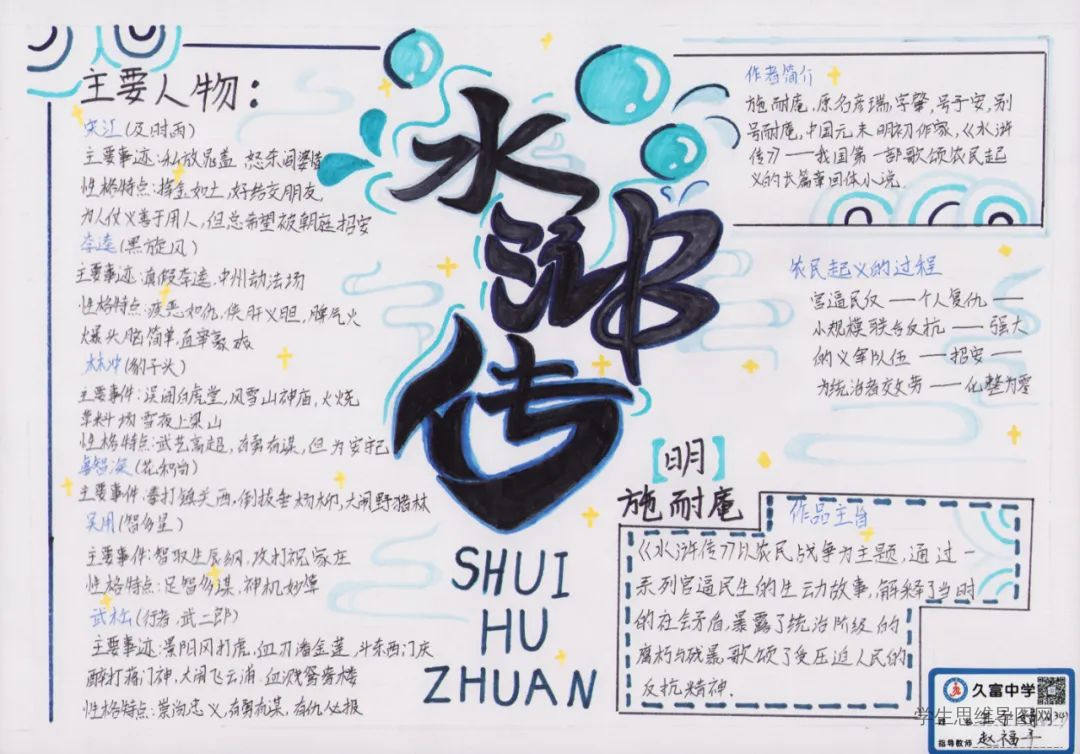 主要人物:
宋江(及时雨)
主要事迹:私放晁盖 怒杀阎婆惜
性格特点:挥金如土,好结交朋友,
为人仗义善于用人,但总希望被朝廷招安
李逵(黑旋风)
主要事迹:真假李逵,中州劫法场
性格特点:疾恶如仇,侠肝义胆,脾气火
爆头脑简单,直率豪放
林冲(豹子头)
主要事件:误闯白虎堂,风雪山神庙,火烧
草料场雪夜上梁山
性格特点:武艺高超,有勇有谋,但为安守己
鲁智深(花和尚)
主要事件:拳打镇关西,倒拔垂杨柳,大闹野猪林
吴用(智多星)
主要事件:智取生辰纲,攻打祝家庄
性格特点:足智多谋,神机妙算
武松(行者,武二郎)
主要事迹:景阳冈打虎,血刃潘金莲,斗杀西门庆
醉打蒋门神,大闹飞云浦 血溅鸳鸯楼
性格特点:崇尚忠义,有勇有谋,有仇必报
水浒传
SHUI
HU
ZHUAN
[明]
施耐庵
作者简介
施耐庵,原名彦瑞,字肇,号子安,别
号耐庵,中国元末明初作家,《水浒
传》——我国第一部歌颂农民起
义的长篇章回体小说.
农民起义的过程
官逼民反——个人复仇——
小规模联合反抗——强大
的义军队伍——招安——
为统治者交效劳——化整为零
作品主旨
《水浒传》以农民战争为主题,通过一
系列官逼民生的生动故事,解释了当时
的社会矛盾,暴露了统治阶级的
腐朽与残暴,歌颂了受压迫人民的
反抗精神.
久富中学
学生思维导图网
指导教师 赵福平